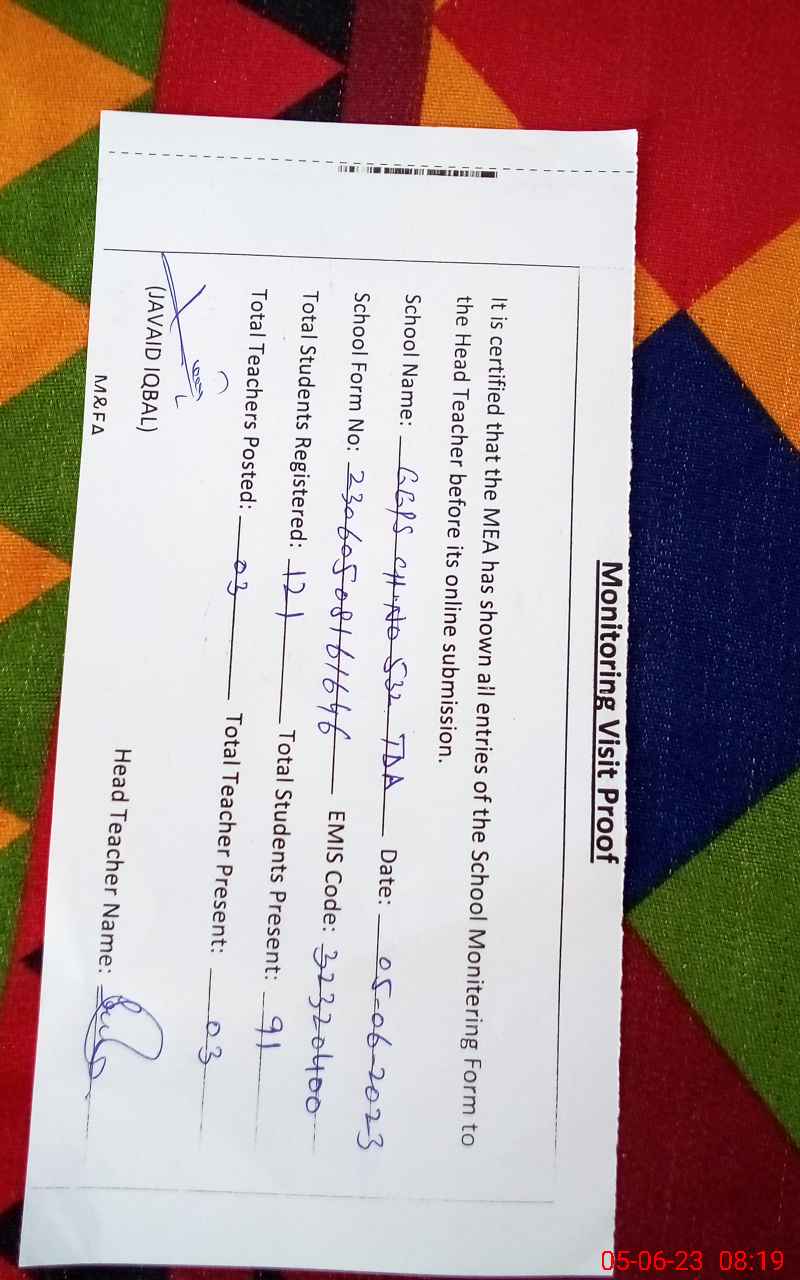 Monitoring Visit Proof
It is certified that the MEA has shown all entries of the School Monitering Form to
the Head Teacher before its online submission.
School Name: GGPS CH.No 532 TDA Date: 05-06-2023
School Form No: 23060508161646 EMIS Code: 32320400
Total Students Registered: 121 Total Students Present: 91
Total Teachers Posted: 03 Total Teacher Present: 03
(JAVAID IQBAL) Head Teacher Name:
M&FA
05-06-23 08:19